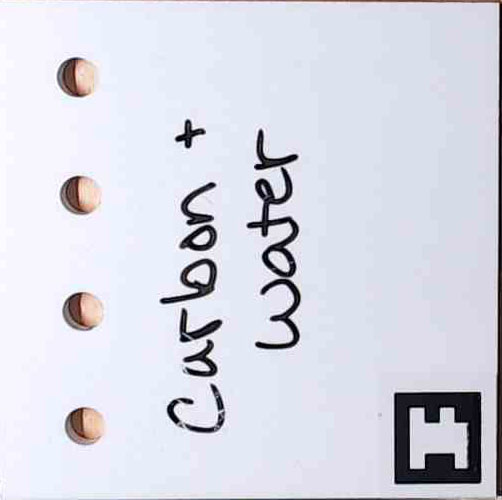 Carbon +
water